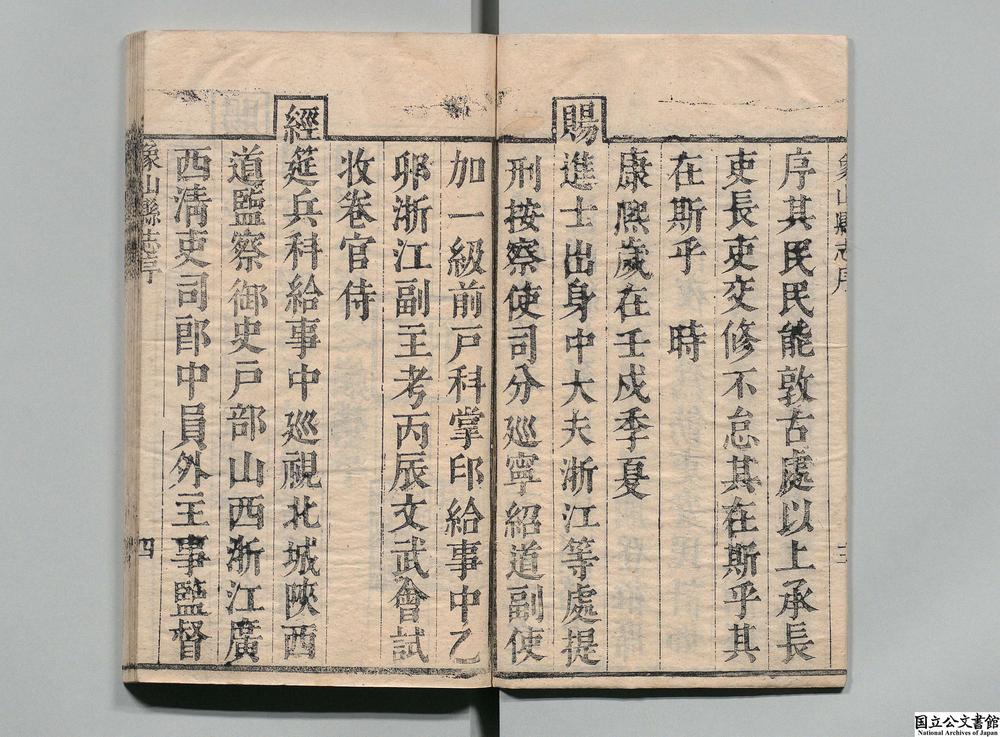 象山縣志序
三
序其民民能敦古處以上承長
吏長吏交修不怠其在斯乎其
在斯乎 時
康熙歲在壬戌季夏
賜進士出身中大夫浙江等處提
刑按察使司分廵寧紹道副使
加一級前戸科掌印給事中乙
卯浙江副主考丙辰文武會試
收卷官侍
經筵兵科給事中廵視北城陝西
道監察御史戸部山西浙江廣
西清吏司郎中員外主事監督
象山縣志序
四
国立公文書館
National Archives of Japan